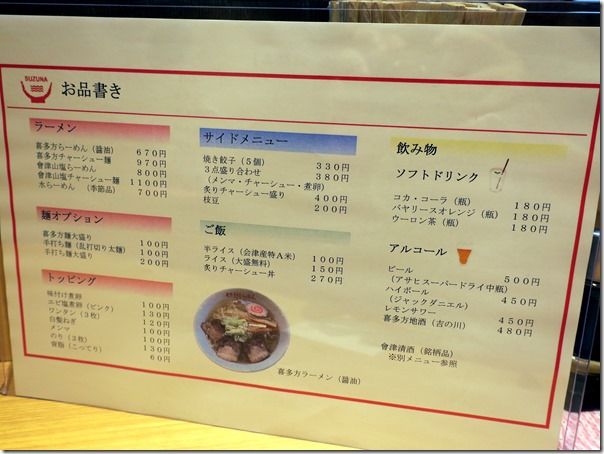 SUZUNA
お品書き
ラーメン
喜多方らーめん（醤油） 670円
喜多方チャーシュー麺 970円
會津山塩らーめん 800円
會津山塩チャーシュー麺 1100円
水らーめん （季節品） 700円
麺オプション
喜多方麺大盛り 100円
手打ち麺（乱打切り太麺） 100円
手打ち麺大盛り 200円
トッピング
味付け煮卵 100円
エビ塩煮卵（ピンク） 130円
ワンタン（3枚） 120円
白髪ねぎ 100円
メンマ 100円
のり（3枚） 130円
背脂（こってり） 60円
サイドメニュー
焼き餃子（5個） 330円
3点盛り合わせ 380円
（メンマ・チャーシュー・煮卵）
炙りチャーシュー盛り 400円
枝豆 200円
ご飯
半ライス（会津産特A米） 100円
ライス（大盛無料） 150円
炙りチャーシュー丼 270円
喜多方ラーメン（醤油）
飲み物
ソフトドリンク
コカ・コーラ（瓶） 180円
バヤリースオレンジ（瓶） 180円
ウーロン茶（瓶） 180円
アルコール
ビール 500円
（アサヒスーパードライ中瓶）
ハイボール 450円
（ジャックダニエル）
レモンサワー 450円
喜多方地酒（吉の川） 480円
會津清酒（銘柄品）
※別メニュー参照